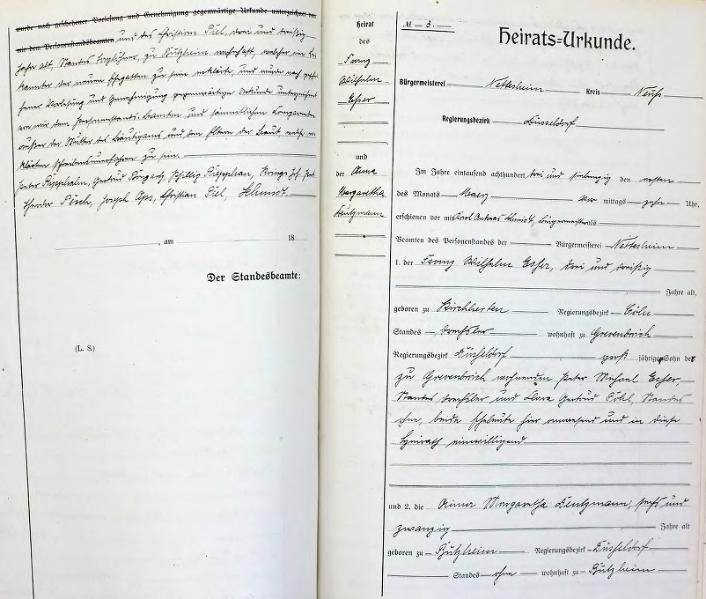 wurde nach geschehener Vorlesung und Genehmigung gegenwärtige Urkunde unterzeichnet von
mir dem Personenstandsbeamten und des Christian Piel, drei und dreißig
Jahre alt, Standes zu Butzheim wohnhaft, welcher ein Be
kannter der neuen Ehegatten zu sein erklärte, und wurde nach gesche
hener Vorlesung und Genehmigung gegenwärtige Urkunde unterzeichnet
von mir dem Personenstands-beamten und sämmtlichen Comparenten
außer der Mutter des Bräutigams und den Eltern der Braut welche er
klärten schreibensunerfahren zu sein.
Peter Gertrud Philipp
Theodor Joseph Christian Piel, Schmidt
am 18
Der Standesbeamte:
(L. S.)
Heirat
des
Franz
Wilhelm
Esser
und
der Anna
Margaretha
Leutzmann
№ 3.
Heirats-Urkunde.
Bürgermeisterei Nettesheim Kreis Neuß
Regierungsbezirk Düsseldorf
Im Jahre eintausend achthundert drei und siebenzig den ersten
des Monats Maerz vor mittags zehn Uhr,
erschienen vor mir Carl Andreas Schmidt, Bürgermeister als
Beamten des Personenstandes der Bürgermeisterei Nettesheim
1. der Franz Wilhelm Esser, drei und dreißig
Jahre alt,
geboren zu Kirchherten Regierungsbezirk Cöln
Standes Drechsler wohnhaft zu Grevenbroich
Regierungsbezirk Düsseldorf groß jähriger Sohn der
zu Grevenbroich wohnenden Peter Michael Esser,
Standes Drechsler und Clara Gertrud Standes
ohne, beide Eheleute hier anwesend und in diese
Heirath einwilligend
und 2. die Anna Margaretha Leutzmann, sechs und
zwanzig Jahre alt
geboren zu Butzheim Regierungsbezirk Düsseldorf
Standes ohne wohnhaft zu Butzheim